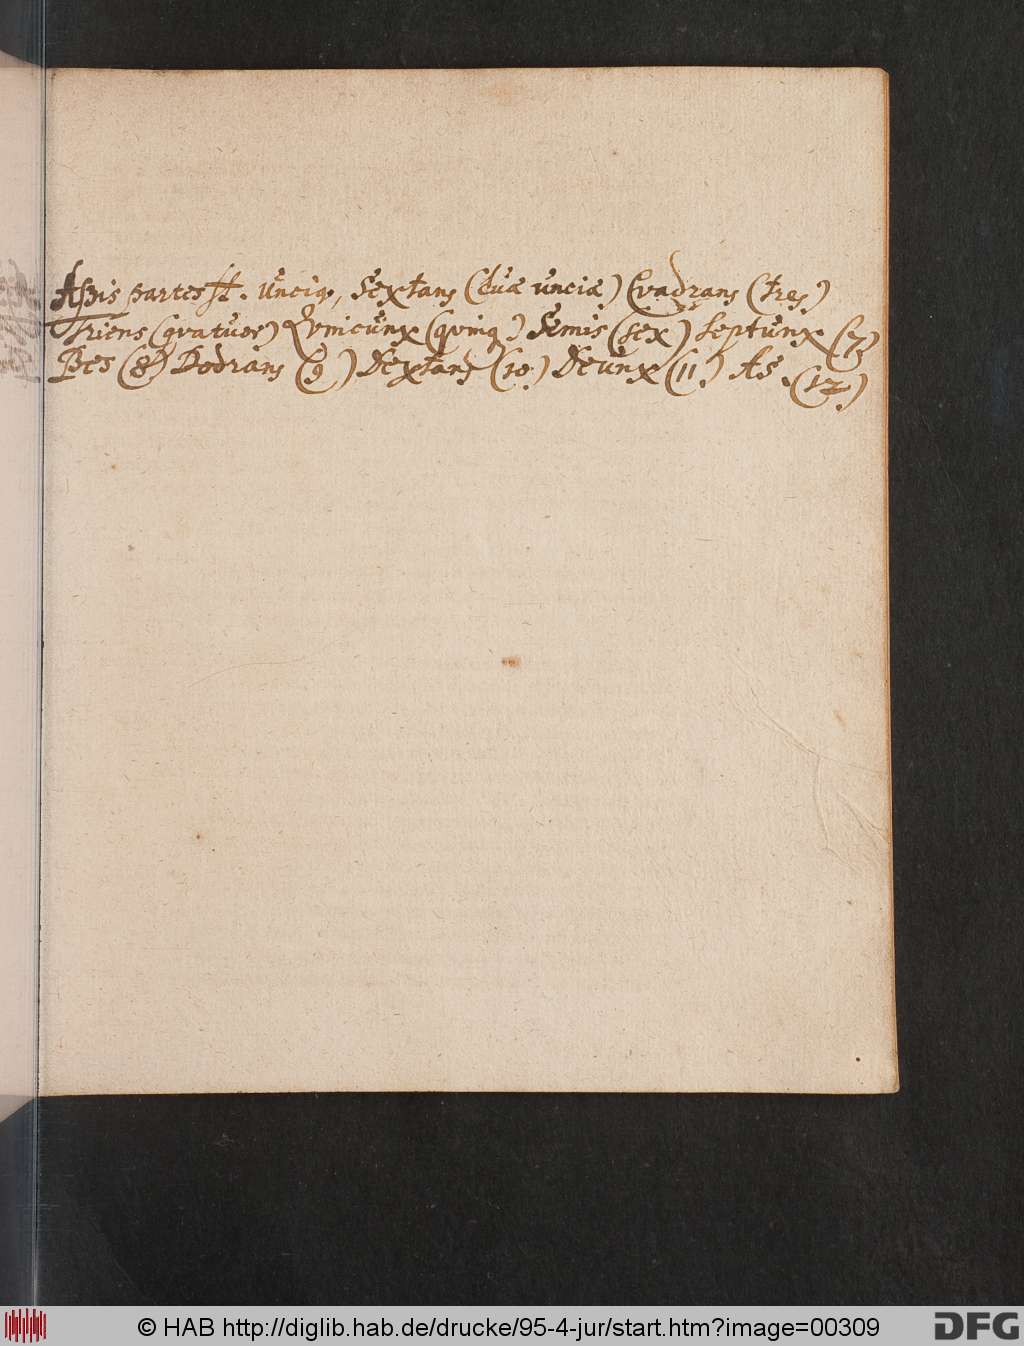 Assis partes st. Uncia, Sextans (duæ unciæ) Qvadrans (tres)
Triens (qvatuor) Qvincunx (qvinq) Semis (sex) Septunx (7)
Bes (8) Dodrans (9) Dextans (10) Deunx (11) As (12.)
© HAB http://diglib.hab.de/drucke/95-4-jur/start.htm?image=00309
DFG